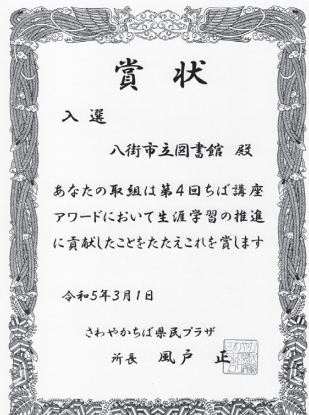 賞状
入選
八街市立図書館 殿
あなたの取組は第4回ちば講座
アワードにおいて生涯学習の推進
に貢献したことをたたえこれを賞します
令和5年3月1日
さわやかちば県民プラザ
所長 風戸 正